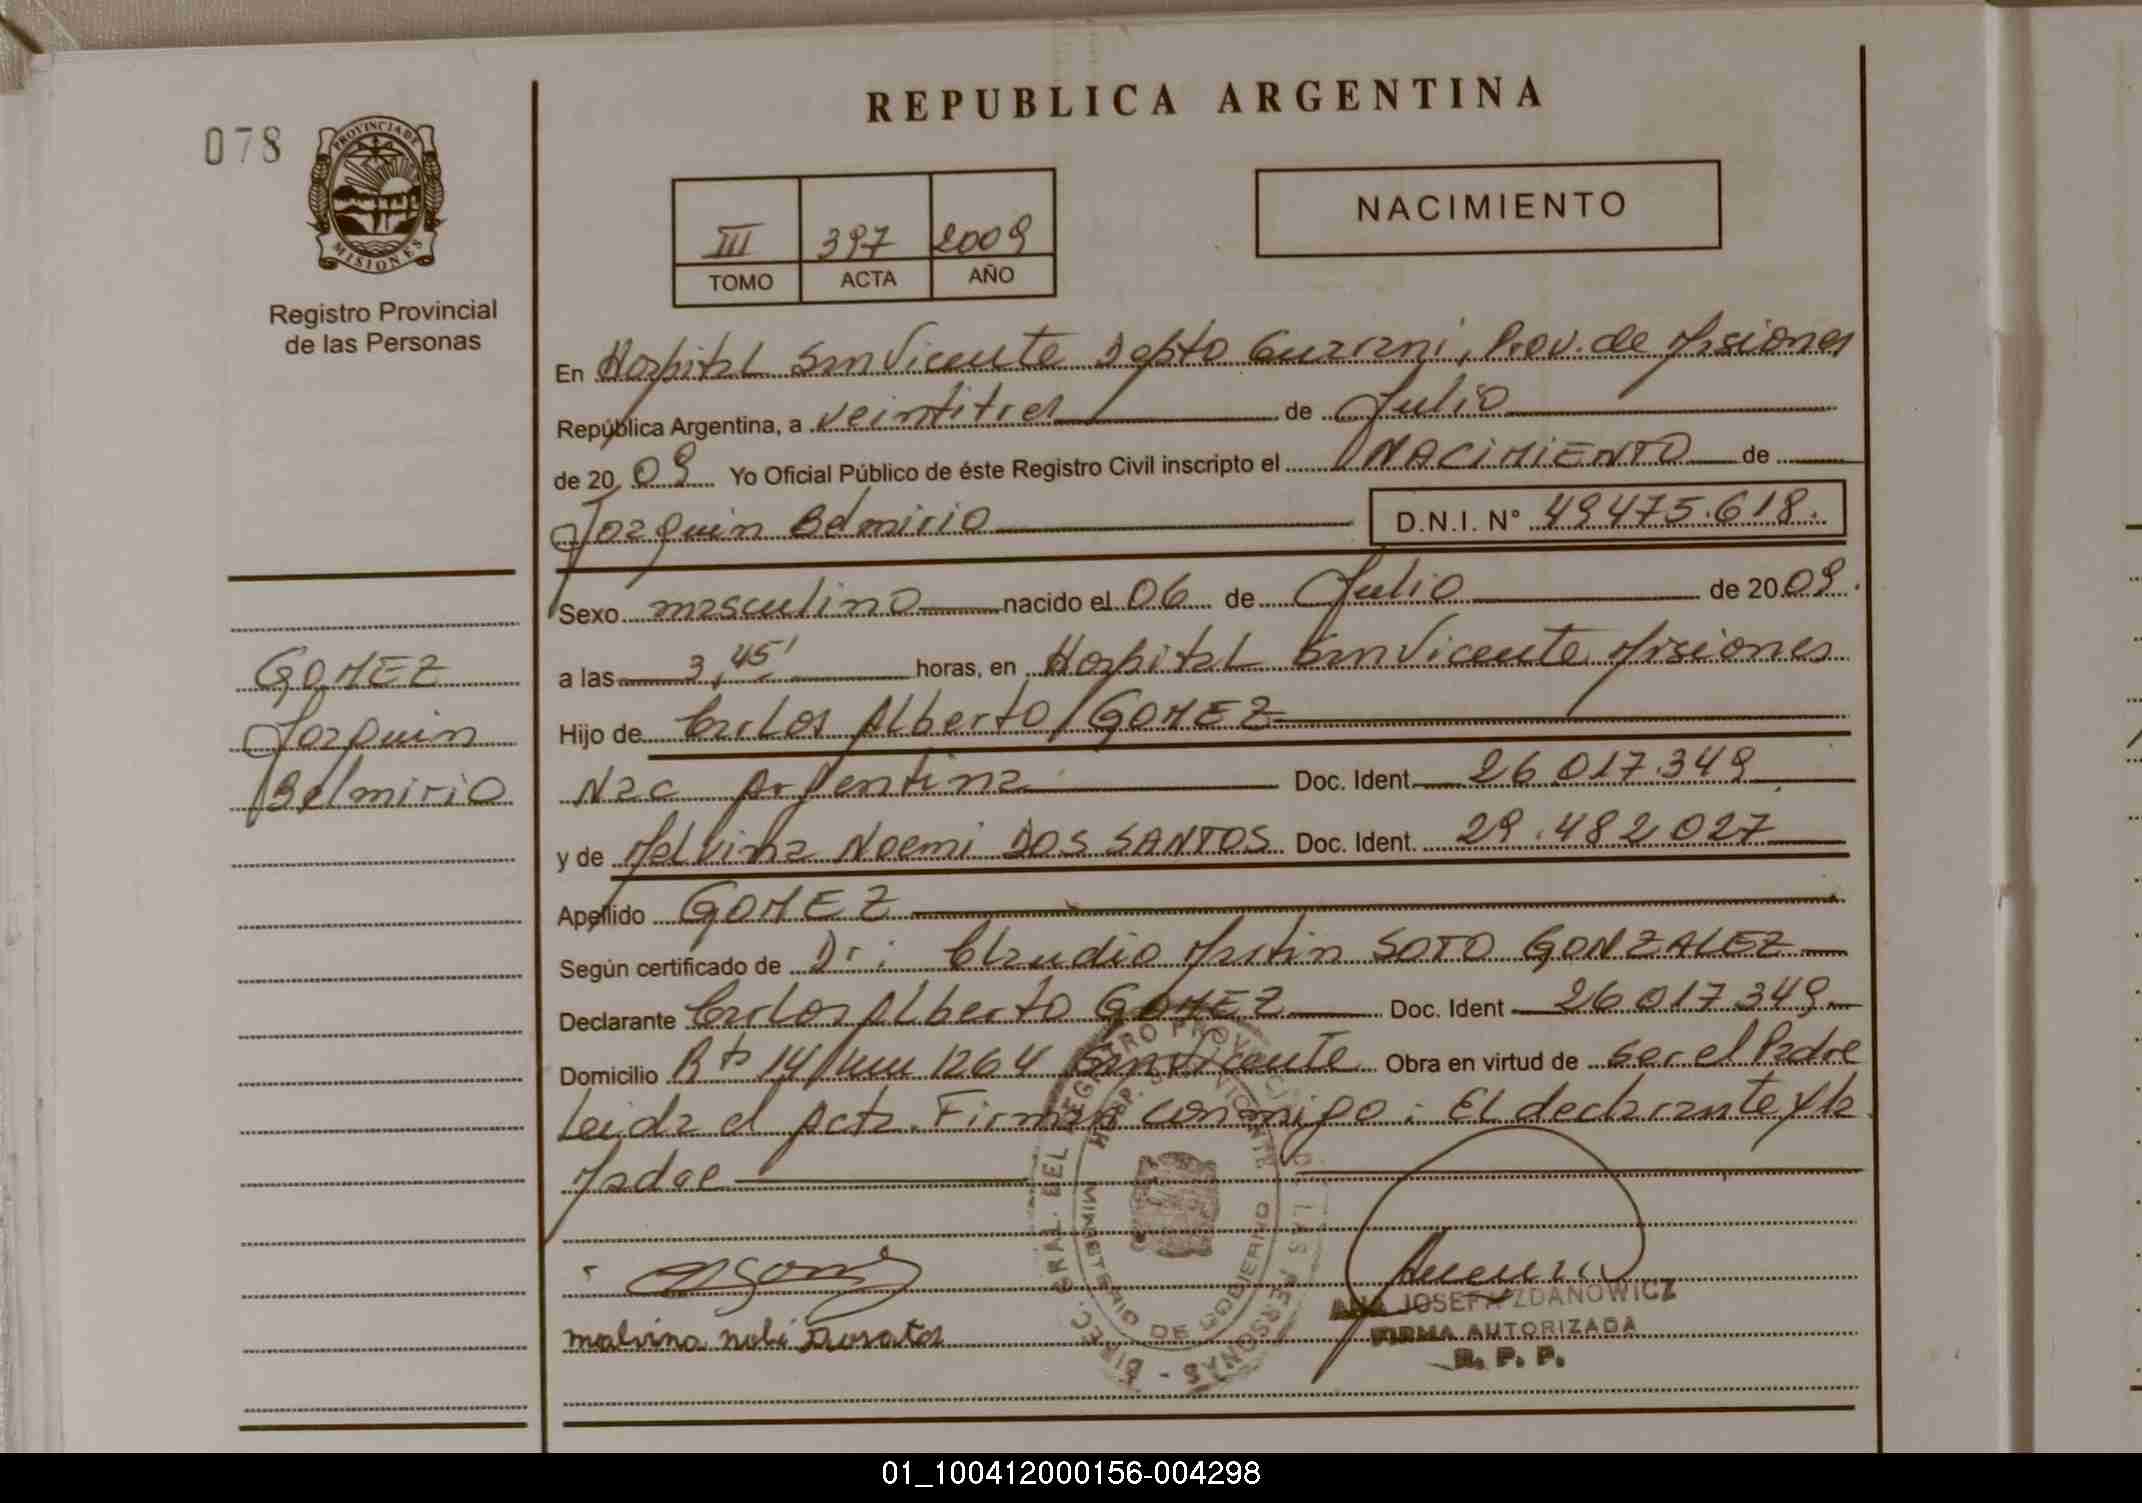 REPUBLICA ARGENTINA
078
PROVINCIA DE
MISIONES
Registro Provincial
de las Personas
III 397 2009
TOMO ACTA AÑO
NACIMIENTO
En Hospital San Vicente Depto Guarani, Prov. de Misiones
República Argentina, a veintitres de Julio
de 2009 Yo Oficial Público de éste Registro Civil inscripto el NACIMIENTO de
Joaquin Belmirio D.N.I. N° 49475.618.
Sexo masculino nacido el 06 de Julio de 2009.
a las 3,45' horas, en Hospital San Vicente Misiones
Hijo de Carlos Alberto GOMEZ
Nac Argentina Doc. Ident. 26.017.349
y de Malvina Noemi DOS SANTOS Doc. Ident. 29.482.027
Apellido GOMEZ
Según certificado de Dr: Claudio Martin SOTO GONZALEZ
Declarante Carlos Alberto GOMEZ Doc. Ident 26.017.349
Domicilio Rta 14 km 1264 San Vicente Obra en virtud de ser el Padre
Leida el Acta. Firman conmigo: El declarante y la
Madre
GOMEZ
Joaquin
Belmirio
DIREC. GRAL. DEL REGISTRO PROVINCIAL DE LAS PERSONAS
HOSP. SAN VICENTE
MINISTERIO DE GOBIERNO
ANA JOSEFA ZDANOWICZ
FIRMA AUTORIZADA
R. P. P.
01_100412000156-004298